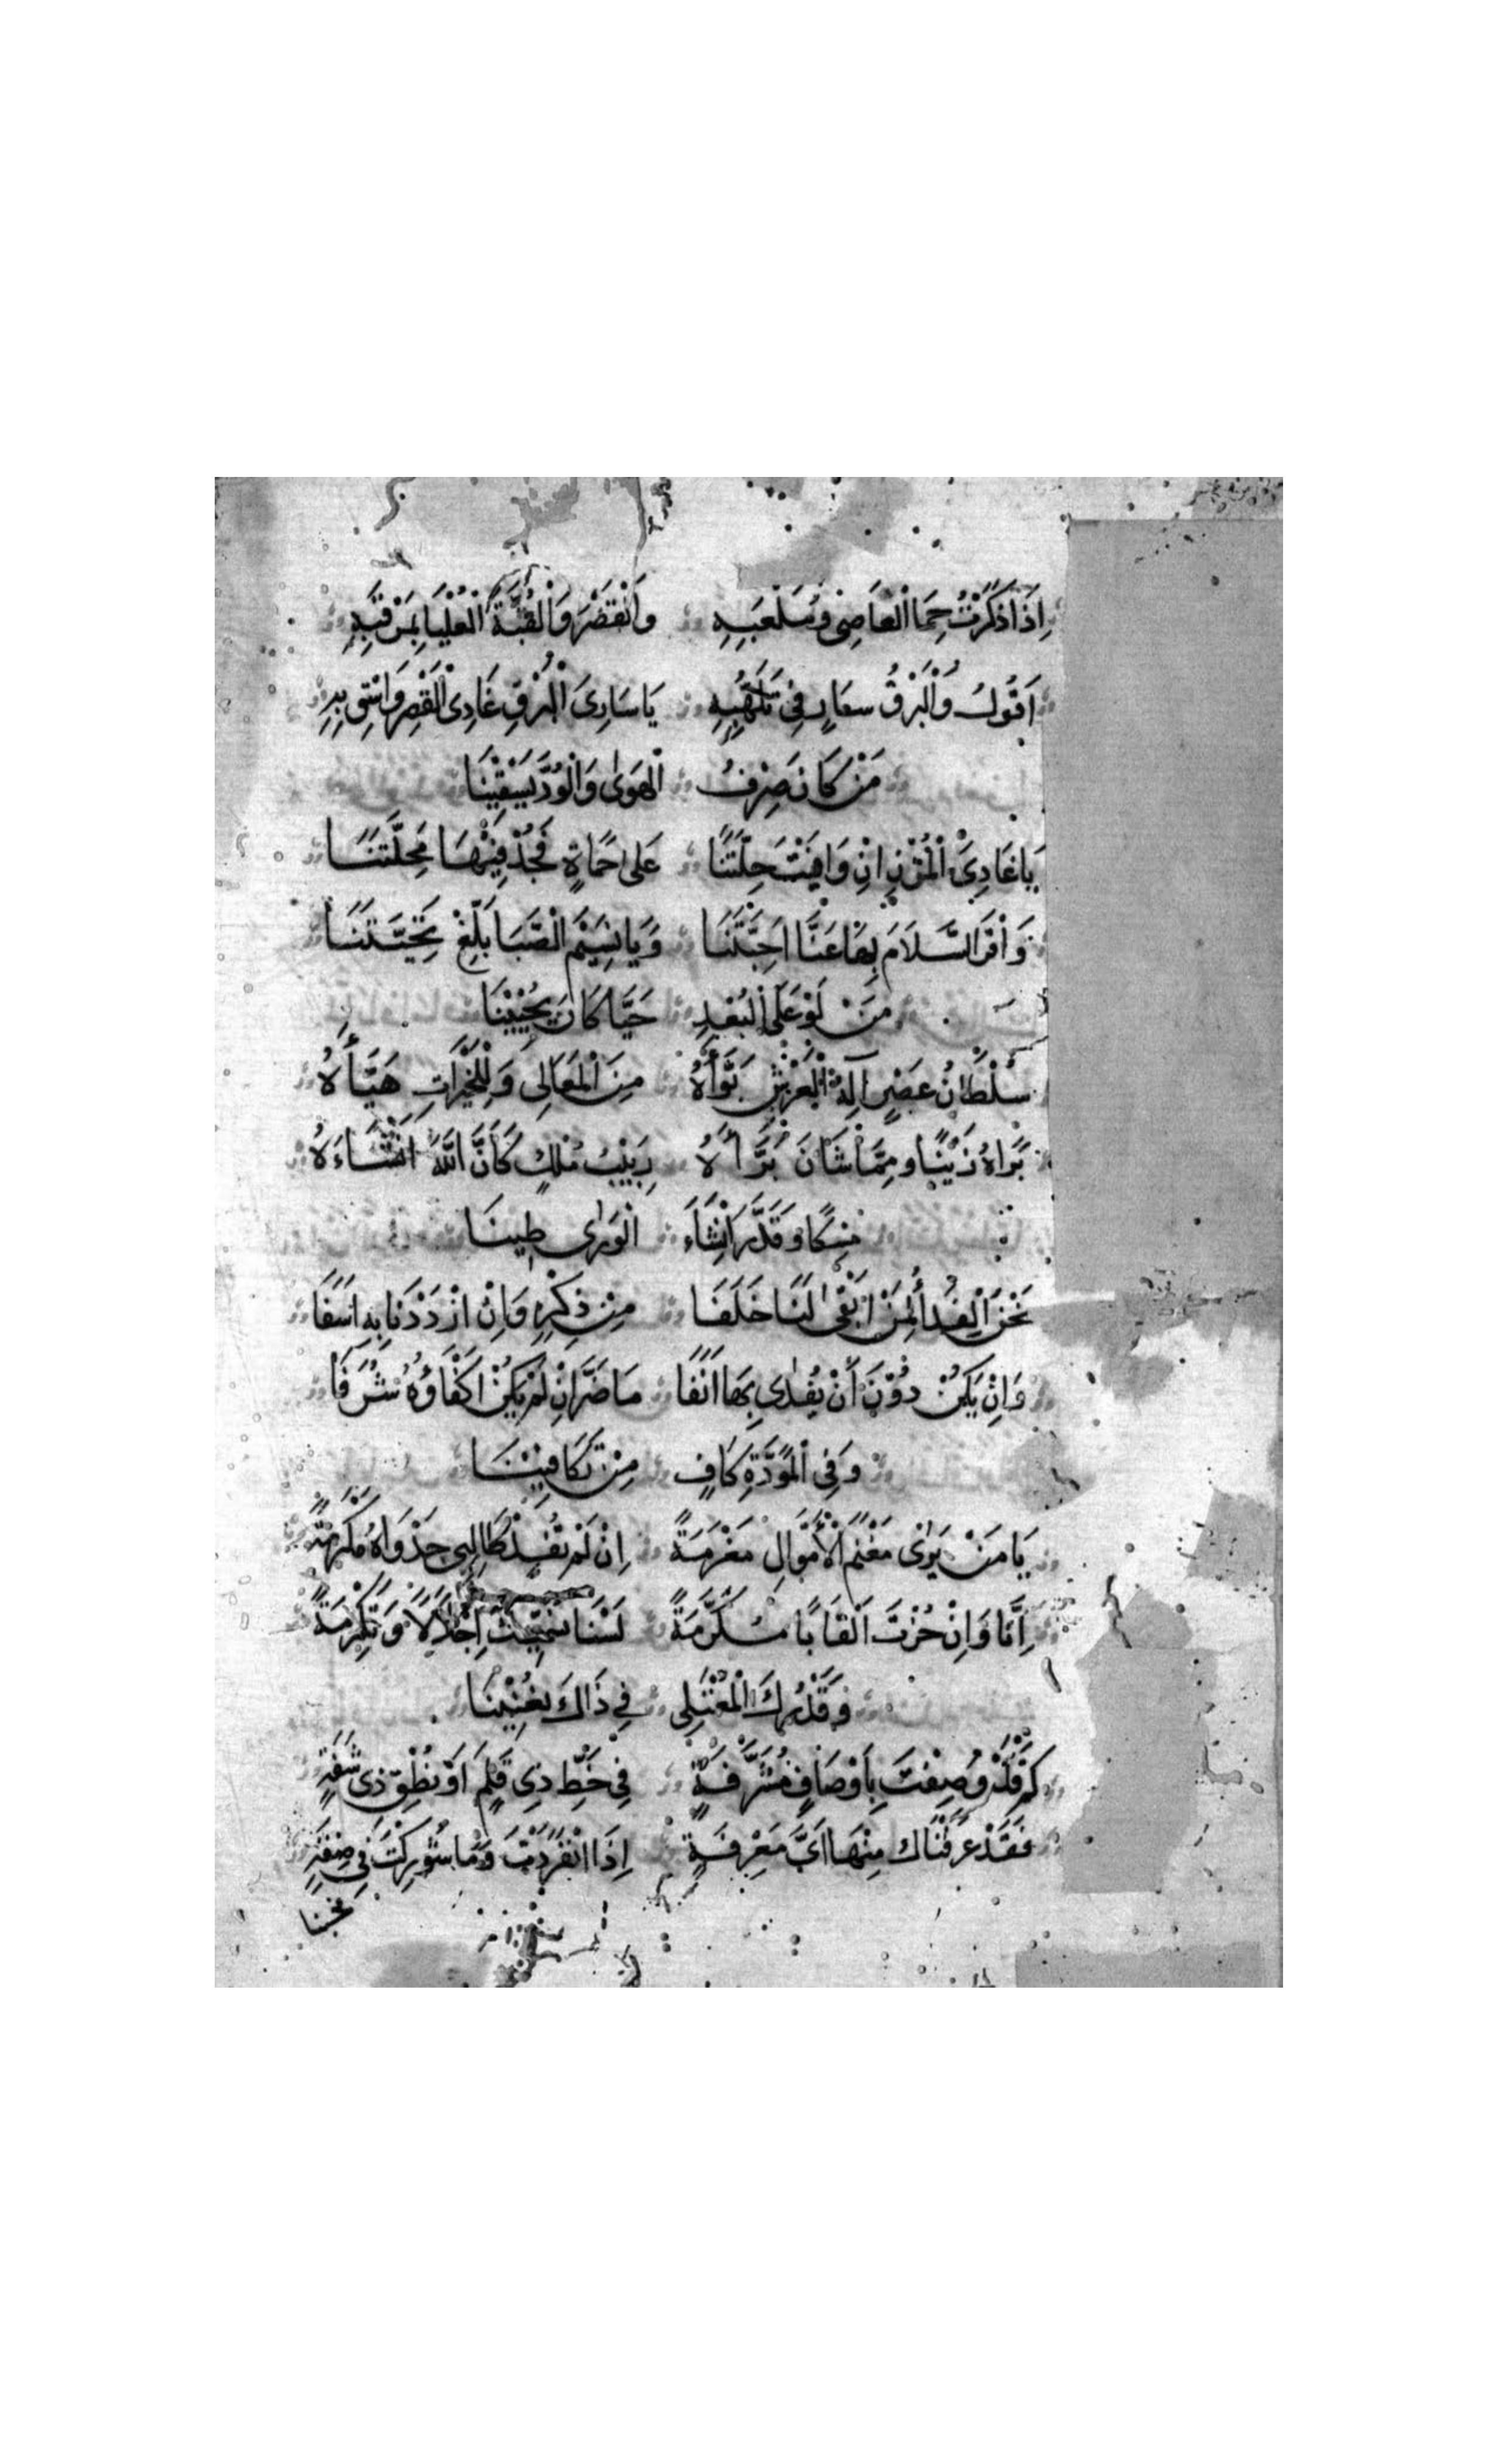 اِذَا ذَكَرْتُ حِمَا الْعَاصِى وَمَلْعَبِهِ وَالْقَصْرَ وَالْقُبَّةَ الْعُلْيَا بِمَرْقَبِهِ
اَقُولُ وَالْبَرْقُ سَارٍ فِى تَلَهُّبِهِ يَا سَارِىَ الْبَرْقِ غَادِى الْقَصْرِ وَاسْقِ بِهِ
مَنْ كَانَ صِرْفُ الْهَوٰى وَالْوُدَّ يَسْقِيْنَا
يَا غَادِىَ الْمُزْنِ اِنْ وَافَيْتَ حِلَّتَنَا عَلٰى حَمَاةٍ فَجُدْ فِيْهَا مَحَلَّتَنَا
وَاقْرَ السَّلَامَ بِهَا عَنَّا اَحِبَّتَنَا وَيَا نَسِيْمَ الصَّبَا بَلِّغْ تَحِيَّتَنَا
مَنْ لَوْ عَلَى الْبُعْدِ حَيًّا كَانَ يُحْيِيْنَا
سُلْطَانُ عَصْرٍ اٰلَهُ الْعَرْشِ بَوَّأَهُ مِنَ الْمَعَالِى وَلِلْخَيْرَاتِ هَيَّأَهُ
بَرَاهُ زَيْنًا وَمِمَّا شَانَ بَرَّأَهُ رَبِيْبُ مُلْكٍ كَأَنَّ اللّٰهَ اَنْشَاءَهُ
مِسْكًا وَقَدَّرَ اِنْشَاءَ الْوَرٰى طِينَا
نَحْنُ الْفِدَأُ لِمَنْ اَبْقٰى لَنَا خَلَفَا مِنْ ذِكْرِهِ وَاِنْ ازْدَدْنَا بِهِ اَسَفَا
وَاِنْ يَكُنْ دُوْنَ أَنْ يُفْدٰى بِهَا اَنَفَا مَا ضَرَّ اِنْ لَمْ يَكُنْ اَكْفَاؤُهُ شَرَفَا
وَفِى الْمَوَدَّةِ كَافٍ مِنْ تَكَافِيْنَا
يَا مَنْ يَرٰى مَغْنَمَ الْأَمْوَالِ مَغْرَمَةً اِنْ لَمْ تُفِدْ طَالِبِى جَدْوَاهُ مَكْرُمَةً
اِنَّا وَاِنْ حُزْتَ اَلْقَابًا مُكَرَّمَةً لَسْنَا نُسَمِّيْكَ اِجْلَالًا وَتَكْرِمَةً
وَقَدْرُكَ الْمُعْتَلِى فِى ذَاكَ يُغْنِيْنَا
كَمْ قَدْ وُصِفْتَ بِاَوْصَافٍ مُشَرَّفَةٍ فِى خَطِّ ذِى قَلَمٍ اَوْ نُطْقِ ذِى شَفَةٍ
فَقَدْ عَرَفْنَاكَ مِنْهَا اَىَّ مَعْرِفَةٍ اِذَا انْفَرَدْتَ وَمَا شُوْرِكْتَ فِى صِفَةٍ